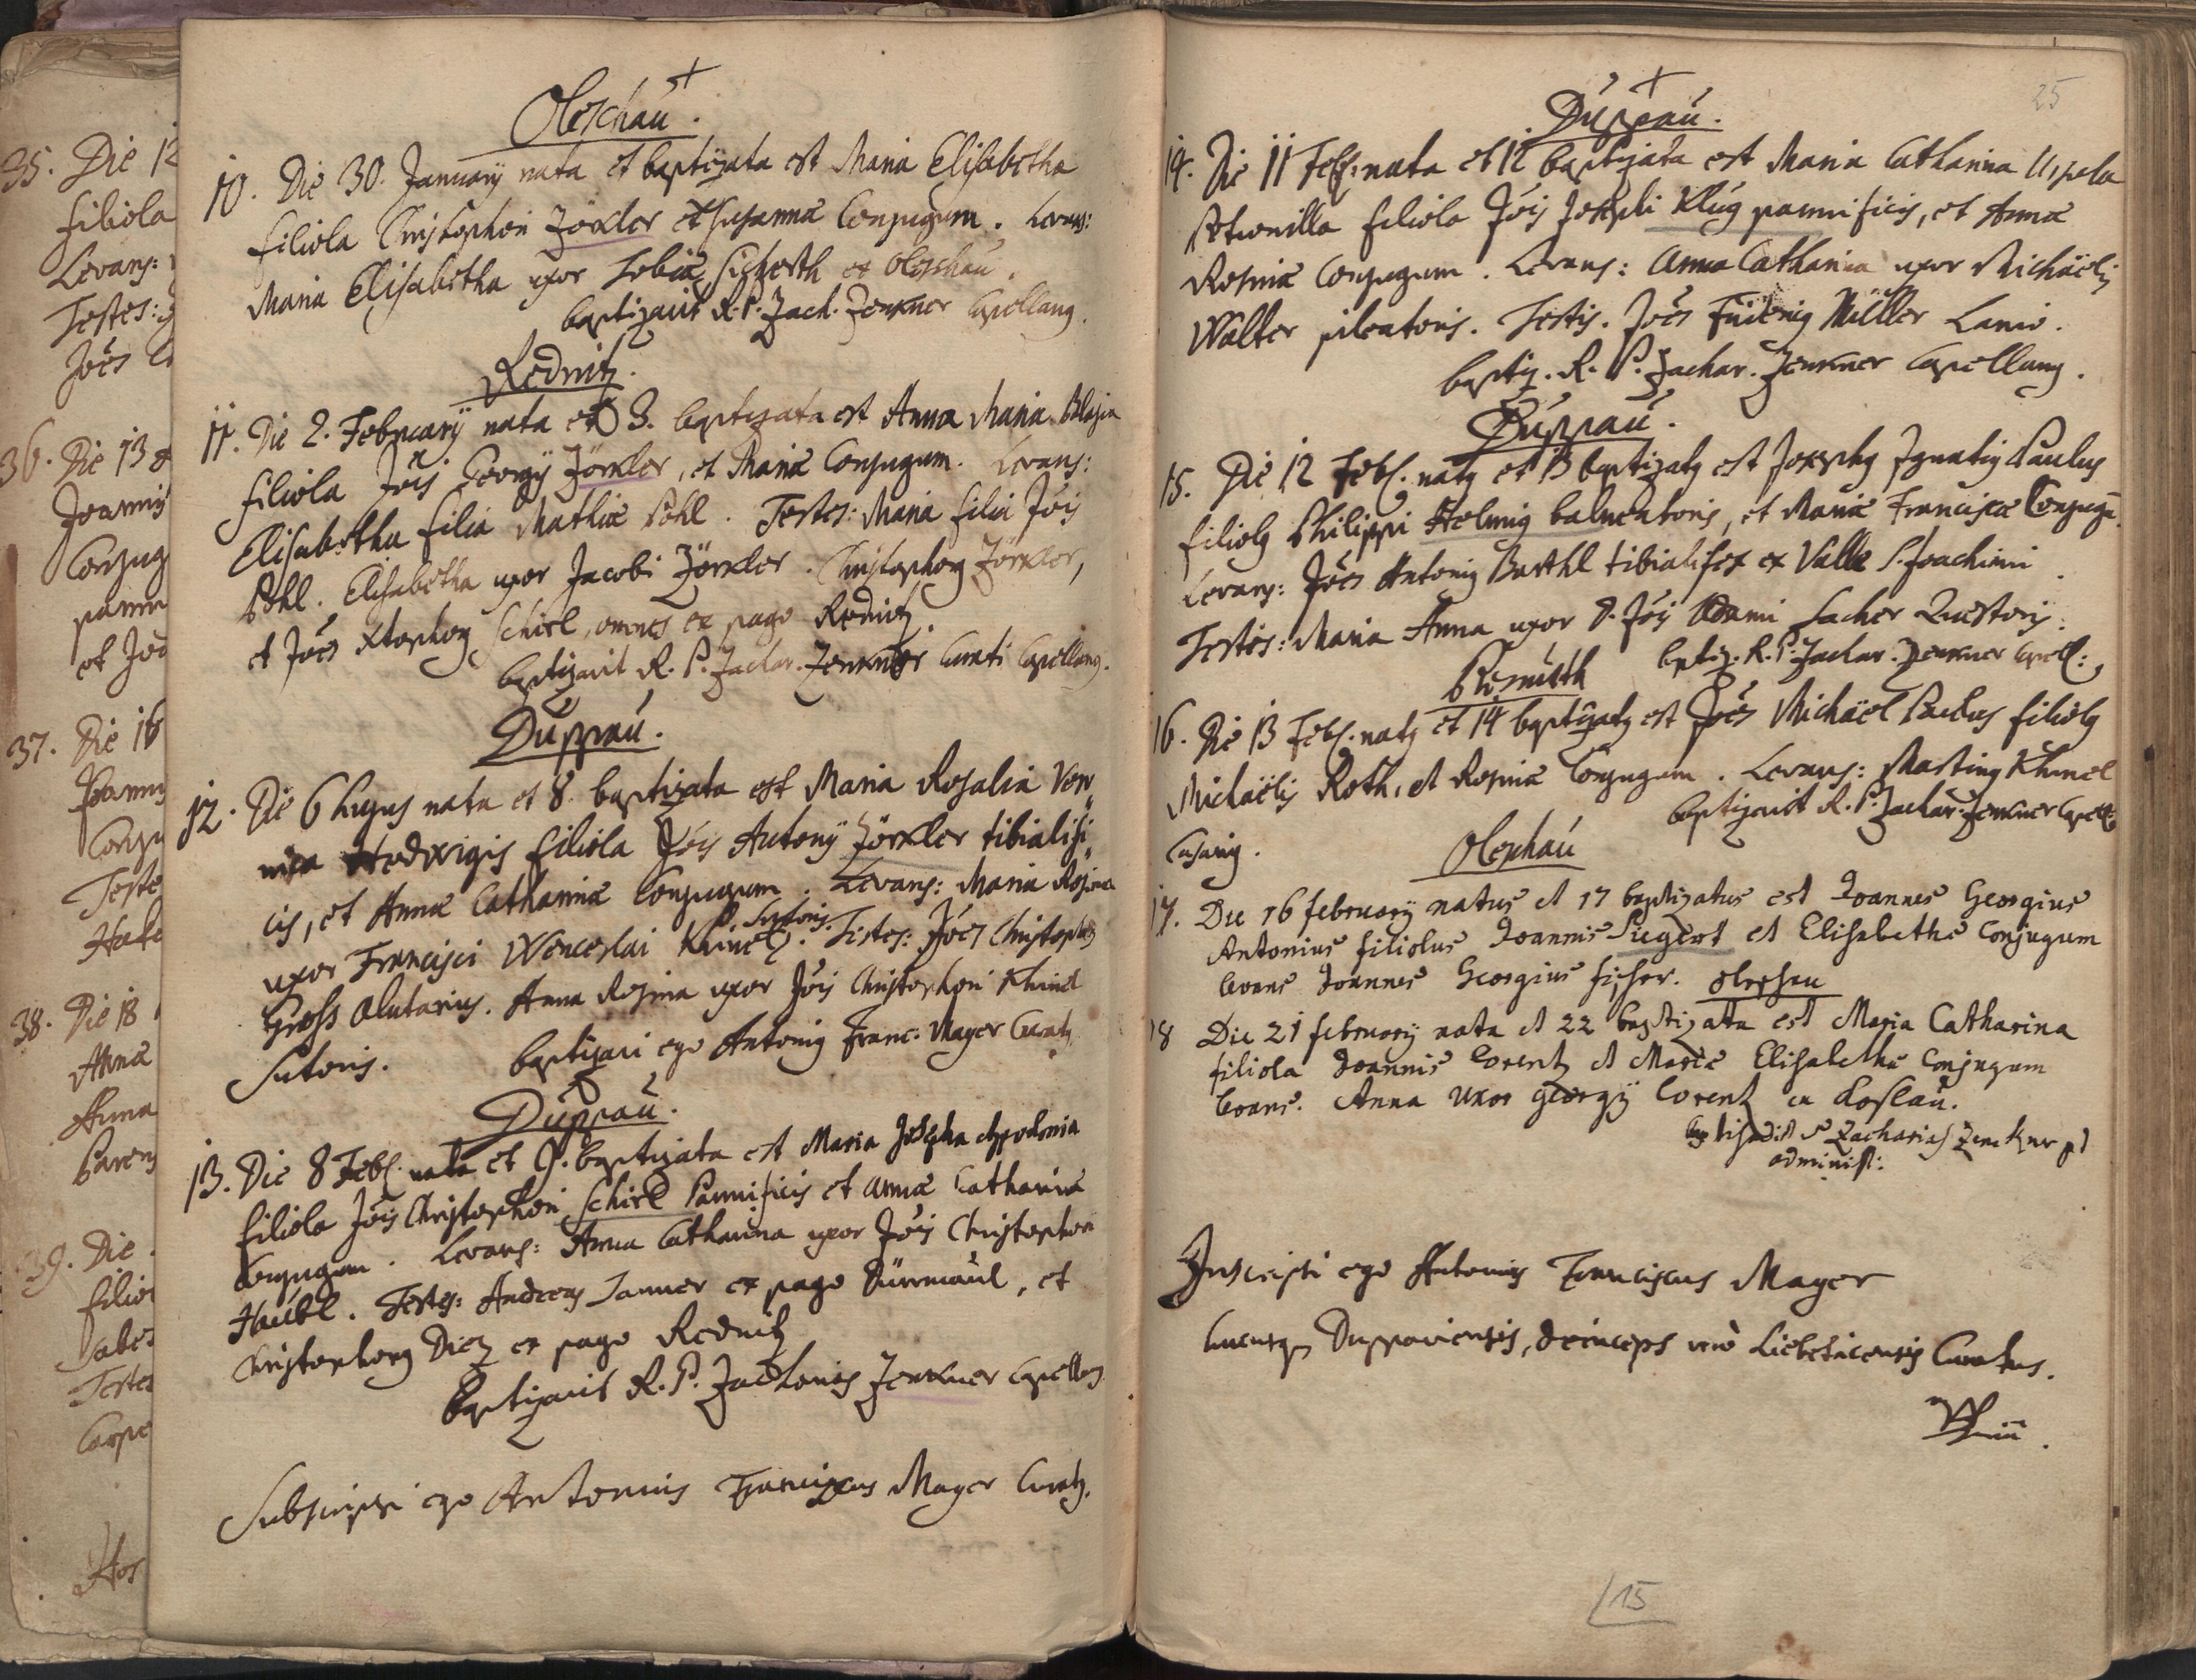 35. Die 12
filiola
Levans:
Testes:
Joes
36. Die 13
Joannis
Conjug
pann
et Joa
37. Die 16
Joannis
Conju
Teste
38. Die 18
Anna
Anna
Parens
39. Die
filio
Testes
Hos
Oleschau.
10. Die 30. January nata et baptizata est Maria Elisabetha
filiola Christophori Zörkler et Susannæ Conjugum. Levans:
Maria Elisabetha uxor Tobiæ Sigherth ex Oleschau.
baptizavit R. P. Zach. Zenkner Capellanus.
Rednitz.
11. Die 2. February nata et 3. baptizata est Anna Maria Blasia
filiola Jois Georgij Zörkler, et Mariæ Conjugum. Levans:
Elisabetha filia Mathiæ Pöhl. Testes: Maria filia Jois
Pöhl. Elisabetha uxor Jacobi Zörkler. Christophorus Zörkler,
et Joes Xtophorus Schirl, omnes ex pago Rednitz.
baptizavit R. P. Zachar. Zenkner Curati Capellanus.
Duppau.
12. Die 6 hujus nata et 8. baptizata est Maria Rosalia Vero
nica Hedwigis filiola Jois Antonij Zörkler tibialifi
cis, et Annæ Catharinæ Conjugum. Levans: Maria Rosina
uxor Francisci Wenceslai Khinel P. Sutoris. Testes: Joes Christophorus
Gross Alutarius. Anna Rosina uxor Jois Christophori Khinel
Sutoris. baptizavi ego Antonius Franc: Mayer Curatus
Duppau.
13. Die 8 Feb. nata et 9. baptizata est Maria Josepha Appolonia
filiola Jois Christophori Schirl Pannificis et Annæ Catharinæ
Conjugum. Levans: Anna Catharina uxor Jois Christophori
Heubl. Testes: Andreas Janner ex pago Dürrmaul, et
Christophorus Diez ex pago Rednitz
baptizavit R. P. Zacharias Zenkner Capellanus
Subscripsi ego Antonius Franciscus Mayer Curatus.
25
Duppau.
14. Die 11 Feb: nata et 12 baptizata est Maria Catharina Ursula
Petronilla filiola Jois Josephi Klug pannificis, et Annæ
Rosinæ Conjugum. Levans: Anna Catharina uxor Michaëlis
Walter pileatoris. Testis. Joes Müller Lanio.
baptiz. R. P. Zachar. Zenkner Capellanus.
Duppau.
15. Die 12 Feb. natus et 13 baptizatus est Josephus Ignatius Paulus
filiolus Philippi Helmig balneatoris, et Mariæ Franciscæ Conjugu.
Levans: Joes Antonius Barthl tibialifex ex Valle S. Joachimi.
Testes: Maria Anna uxor D. Jois Adami Sacher Quæstoris.
baptiz. R. P. Zachar. Zenkner Capell:
Promuth
16. Die 13 Feb. natus et 14 baptizatus est Joes Michäel Paulus filiolus
Michaëlis Roth, et Rosinæ Conjugum. Levans: Martinus Khinel
Casarius. baptizavit R. P. Zachar. Zenkner Capell:
Oleschau
17. Die 16 february natus et 17 baptizatus est Joannes Georgius
Antonius filiolus Joannis Siegert et Elisabethæ Conjugum
levans Joannes Georgius fischer. Oleschau
18 Die 21 february nata et 22 baptizata est Maria Catharina
filiola Joannis Lorentz et Mariæ Elisabethæ Conjugum
levans. Anna Uxor georgij Lorentz ex Koslau.
baptizavit P Zacharias Zenckner pt
administ:
Inscripsi ego Antonius Franciscus Mayer
hucusq Duppaviensis, deinceps vero Curatus.
15